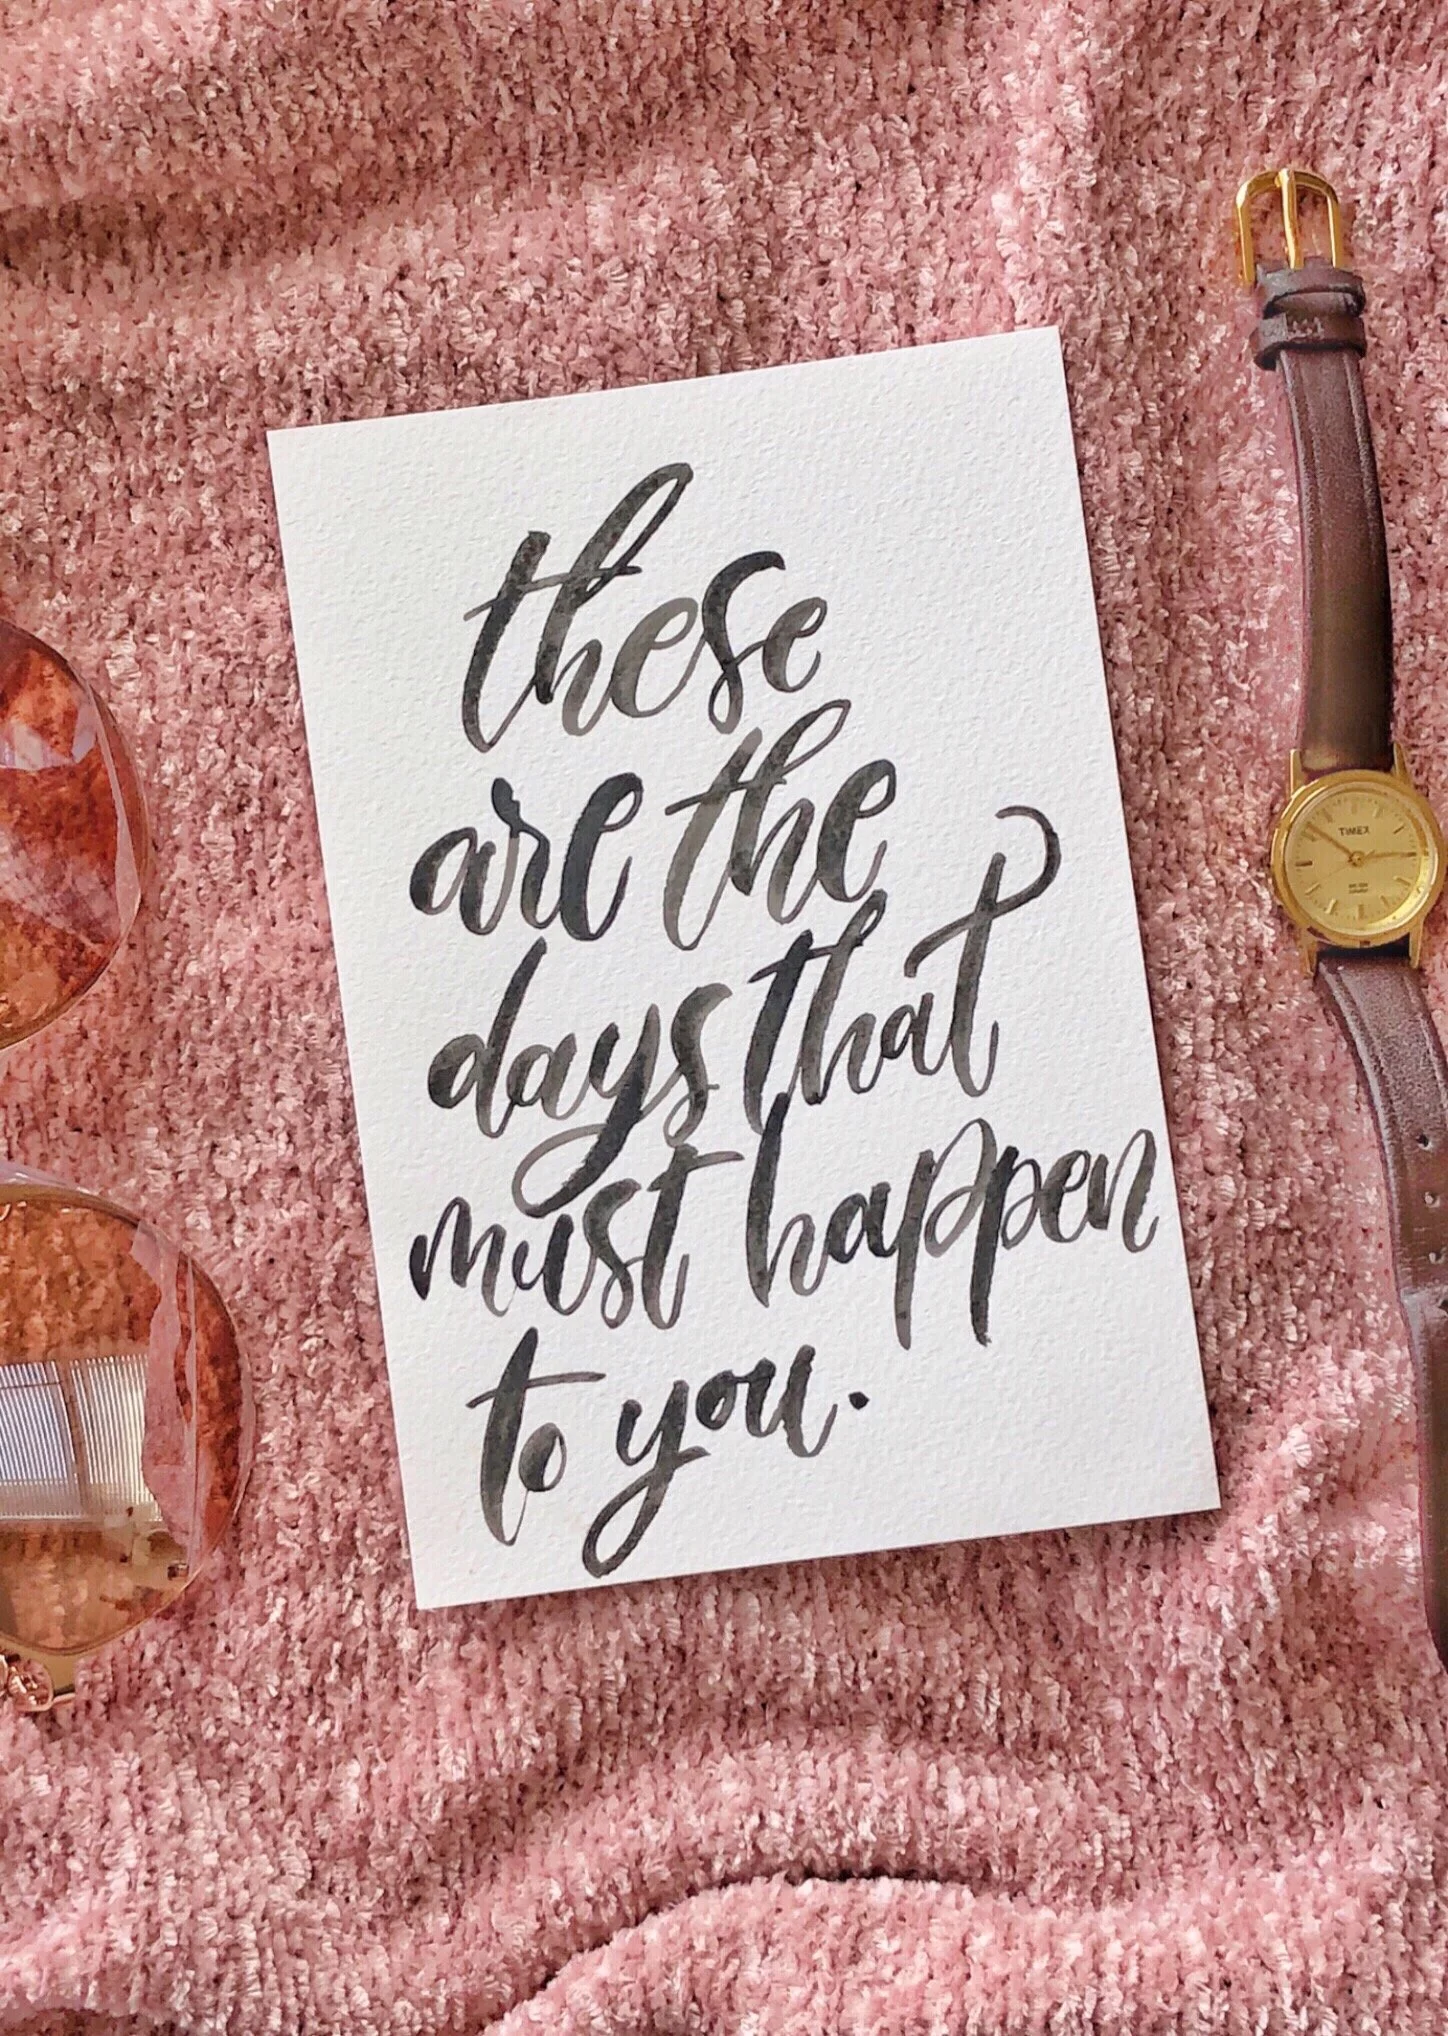 these
are the
days that
must happen
to you.
TIMEX